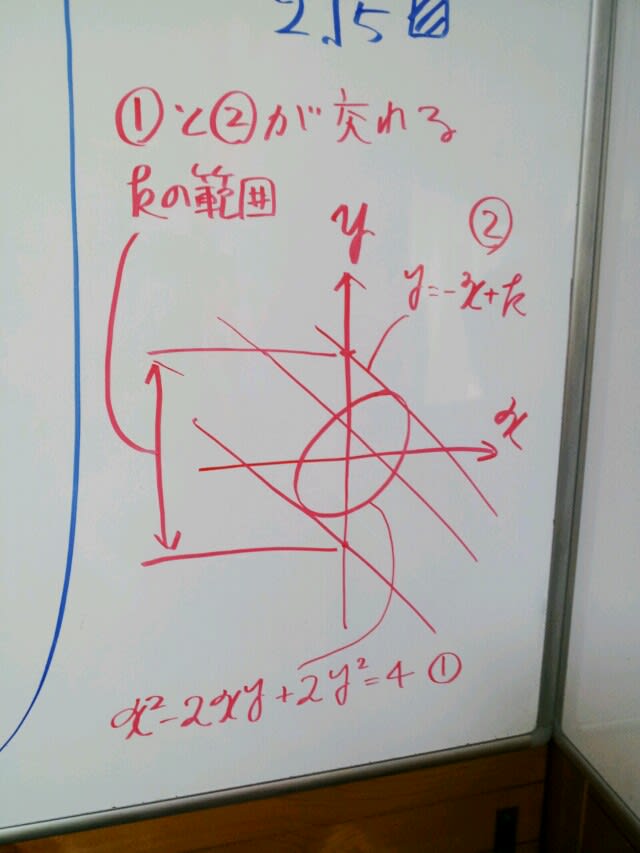 2√5
①と②が交れる
kの範囲
y
②
y=-x+k
x
x²-2xy+2y²=4 ①